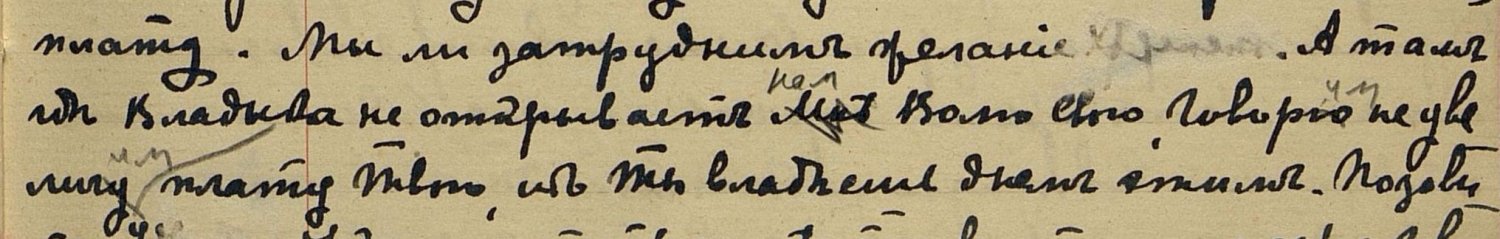 плату. Мы ли затруднимъ желанiе. А тамъ
гдѣ Владыка не открываетъ нам Волю Свою, говорю не уве
личу им плату Твою, ибо Ты владѣешь днемъ этимъ. Позови